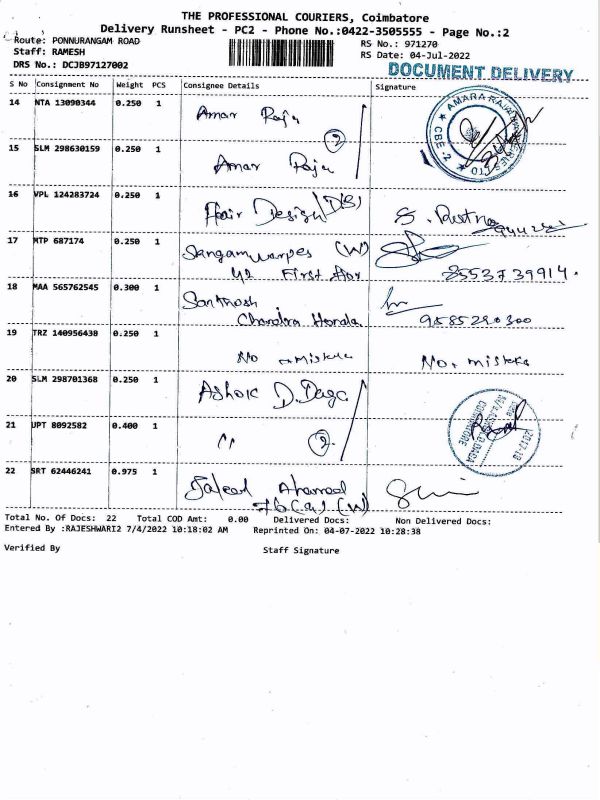 THE PROFESSIONAL COURIERS, Coimbatore
Delivery Runsheet - PC2 - Phone No.:0422-3505555 - Page No.:2
Route: PONNURANGAM ROAD
RS No.: 971270
Staff: RAMESH
RS Date: 04-Jul-2022
DRS No.: DCJB97127002
DOCUMENT DELIVERY
S No Consignment No Weight PCS Consignee Details Signature
14 NTA 13090344 0.250 1 Amar Raja
AMARA RAJA
CBE-2
15 SLM 298630159 0.250 1 Amar Raja
2
16 VPL 124283724 0.250 1 Hair Design
17 MTP 687174 0.250 1
First
18 MAA 565762545 0.300 1 Santhosh
Chandra Honda
19 TRZ 140956438 0.250 1 No
No.
20 SLM 298701368 0.250 1 Ashok D. Daga
21 UPT 8092582 0.400 1 11 2
COIMBATORE
22 SRT 62446241 0.975 1
Total No. Of Docs: 22 Total COD Amt: 0.00 Delivered Docs: Non Delivered Docs:
Entered By :RAJESHWARI2 7/4/2022 10:18:02 AM Reprinted On: 04-07-2022 10:28:38
Verified By Staff Signature